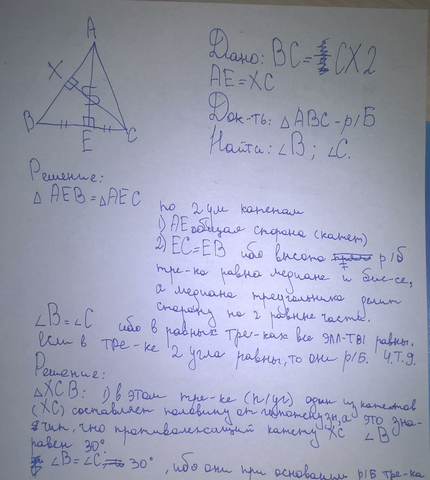 A
X
B
E
C
Дано: BC = CX2
AE = XC
Док-ть: △ABC - р/Б
Найти: ∠B; ∠C.
Решение:
△AEB = △AEC
по 2ум катетам
1) AE общая сторона (катет)
2) EC = EB ибо высота р/б
тре-ка равна медиане и бис-се,
а медиана треугольника делит
сторону на 2 равные части.
∠B = ∠C ибо в равных тре-ках все элл-ты равны.
Если в тре-ке 2 угла равны, то они р/Б. Ч.Т.Д.
Решение:
△XCB: 1) в этом тре-ке (п/уг) один из катетов
(XC) составляет половину от гипотенузы, а это зна-
чит, что противолежащий катету XC ∠B
равен 30°
∠B = ∠C; 30°, ибо они при основании р/Б тре-ка